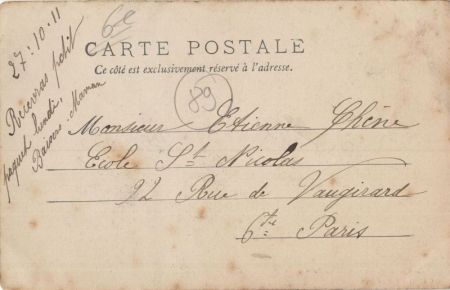 6e
CARTE POSTALE
Ce côté est exclusivement réservé à l'adresse.
89
27-10-11
Recevras petit
paquet lundi.
Baisers. Maman
Monsieur Etienne Chêne
Ecole St Nicolas
92 Rue de Vaugirard
6te Paris